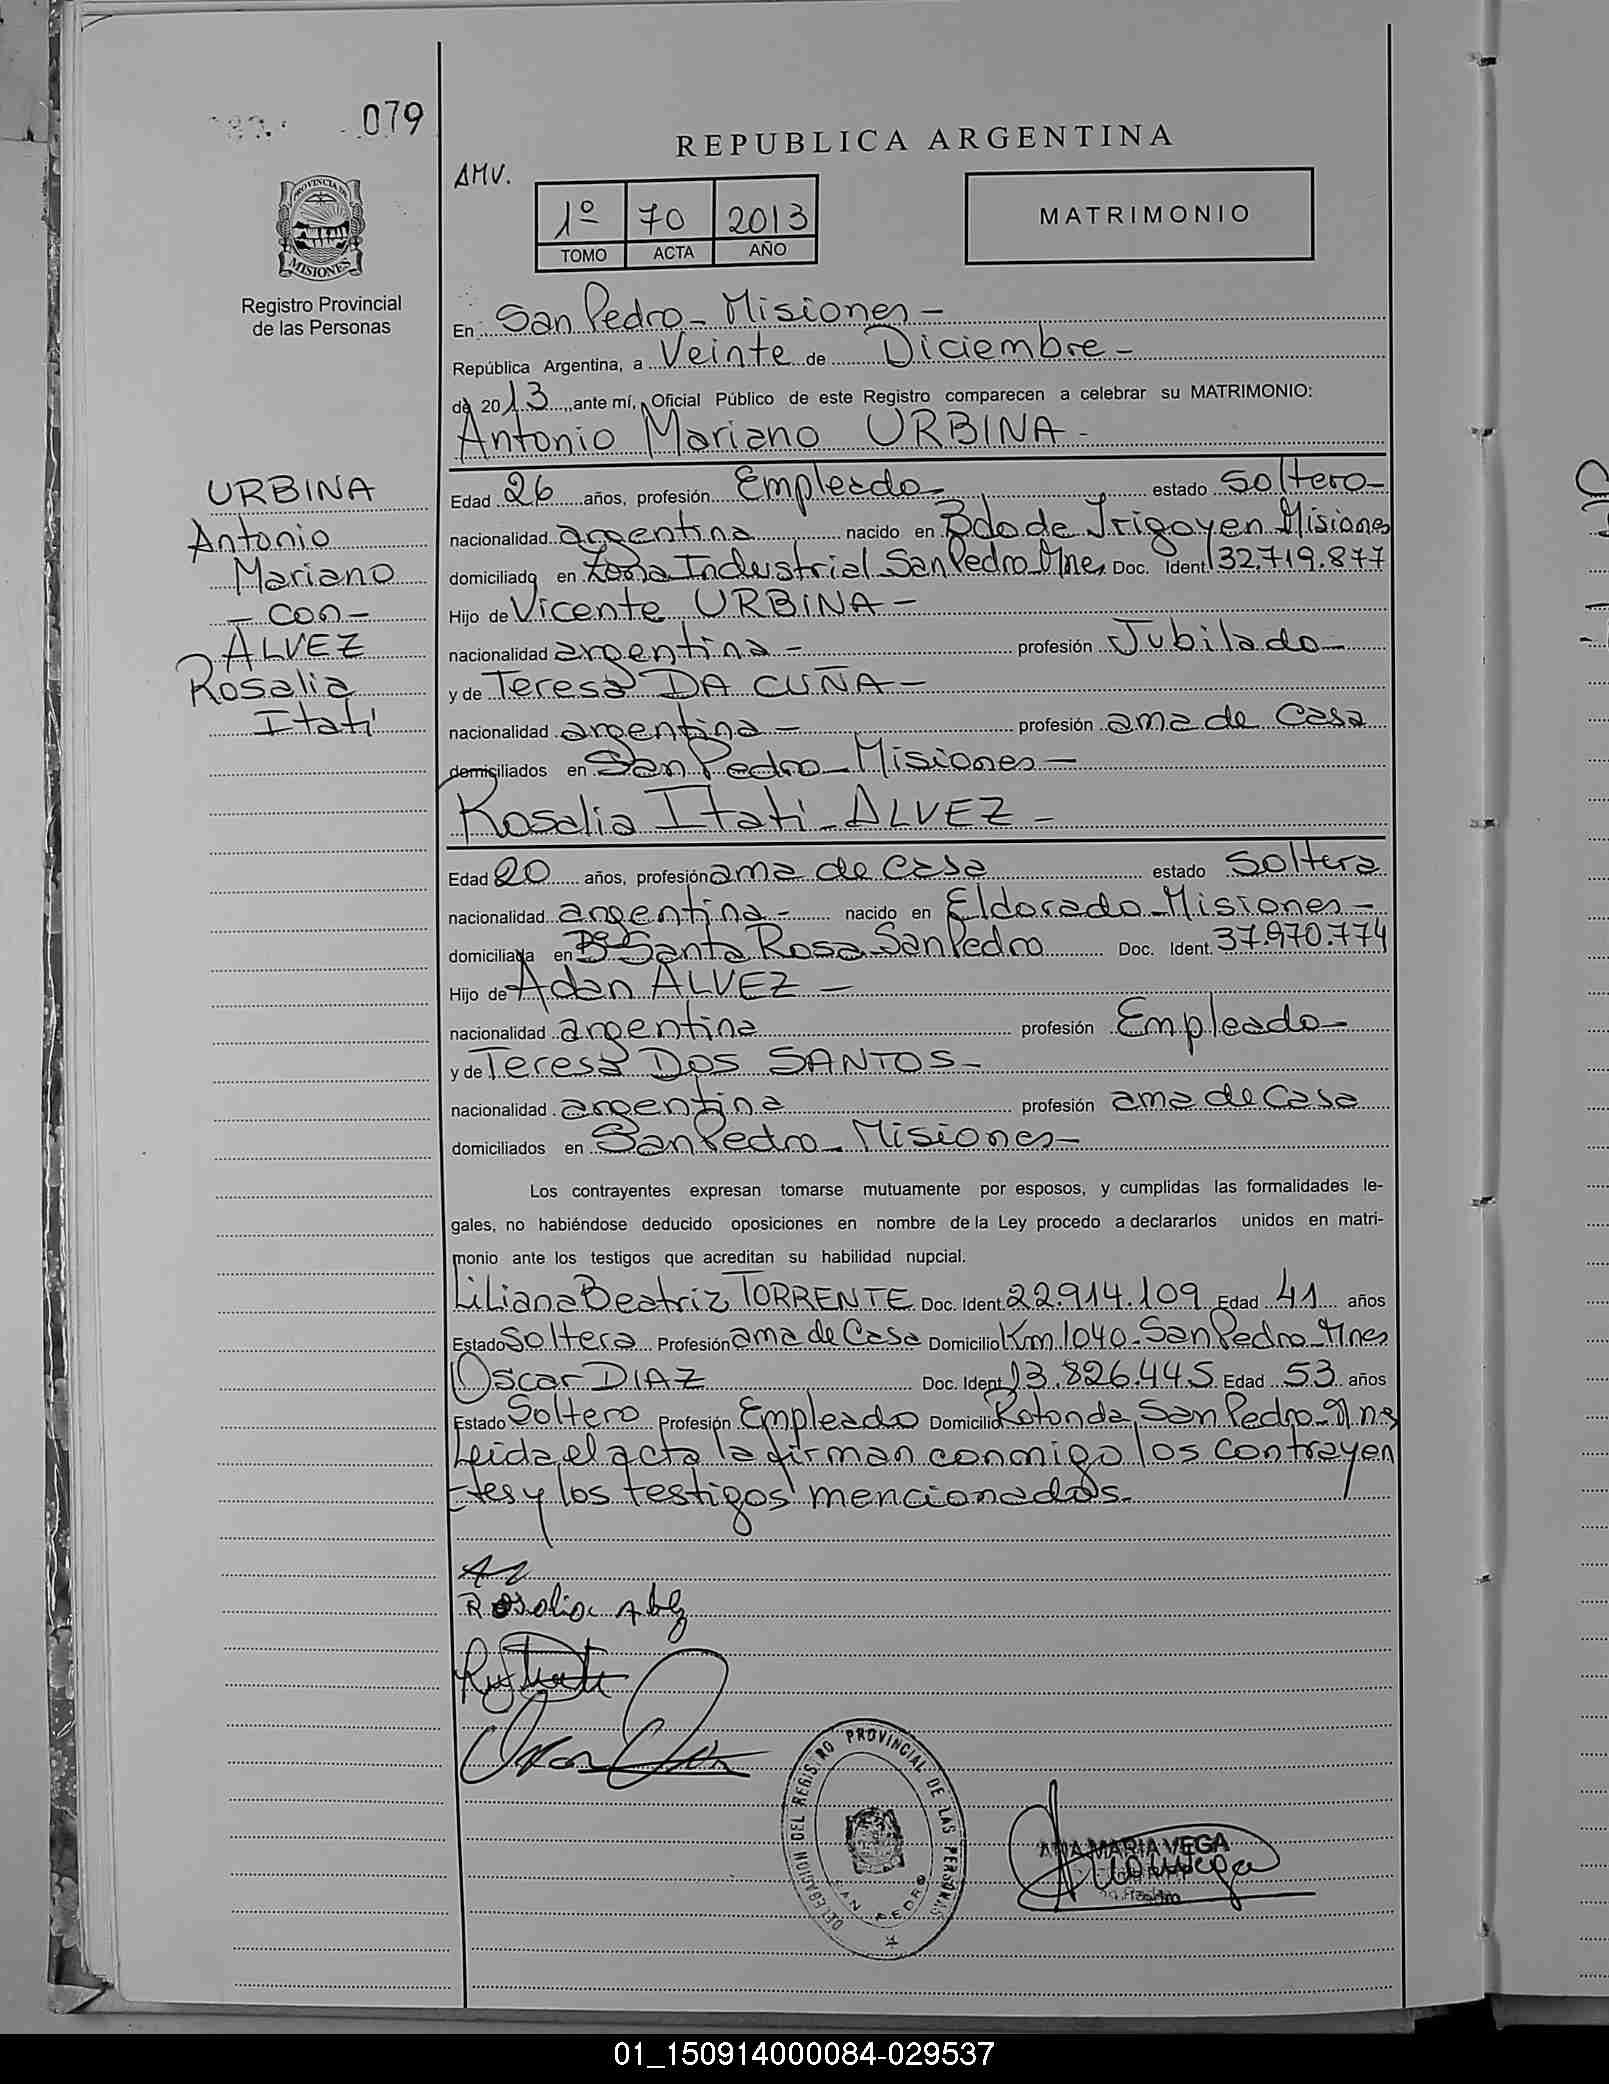 079
REPUBLICA ARGENTINA
AMV.
1º 70 2013
TOMO ACTA AÑO
MATRIMONIO
PROVINCIA DE
MISIONES
Registro Provincial
de las Personas
En San Pedro - Misiones -
República Argentina, a Veinte de Diciembre -
de 2013, ante mí, Oficial Público de este Registro comparecen a celebrar su MATRIMONIO:
Antonio Mariano URBINA -
URBINA
Antonio
Mariano
- con -
ALVEZ
Rosalia
Itatí
Edad 26 años, profesión Empleado - estado Soltero -
nacionalidad argentina nacido en Bdo de Irigoyen Misiones
domiciliado en Zona Industrial San Pedro Mnes Doc. Ident. 32.719.877
Hijo de Vicente URBINA -
nacionalidad argentina - profesión Jubilado -
y de Teresa DA CUÑA -
nacionalidad argentina - profesión ama de casa
domiciliados en San Pedro - Misiones -
Rosalia Itati - ALVEZ -
Edad 20 años, profesión ama de casa estado Soltera
nacionalidad argentina - nacido en Eldorado - Misiones -
domiciliada en Bº Santa Rosa San Pedro Doc. Ident. 37.970.774
Hijo de Adan ALVEZ -
nacionalidad argentina profesión Empleado -
y de Teresa DOS SANTOS -
nacionalidad argentina profesión ama de casa
domiciliados en San Pedro - Misiones -
Los contrayentes expresan tomarse mutuamente por esposos, y cumplidas las formalidades le-
gales, no habiéndose deducido oposiciones en nombre de la Ley procedo a declararlos unidos en matri-
monio ante los testigos que acreditan su habilidad nupcial.
Liliana Beatriz TORRENTE Doc. Ident. 22.914.109 Edad 41 años
Estado Soltera Profesión ama de Casa Domicilio Km 1040 - San Pedro - Mnes
Oscar DIAZ Doc. Ident. 13.826.445 Edad 53 años
Estado Soltero Profesión Empleado Domicilio Rotonda San Pedro - Mnes
Leida el acta la firman conmigo los contrayen
tes y los testigos mencionados.
Rosalia
DELEGACION DEL REGISTRO PROVINCIAL DE LAS PERSONAS
SAN PEDRO
ANA MARIA VEGA
01_150914000084-029537